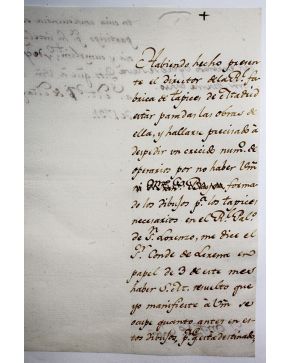 Habiendo hecho presen-
te el director de la Rl. Fa-
brica de tapices de esta Corte
estar paradas las obras de
ella, y hallarse precisado à
despedir un crecido num.o de
operarios por no haber Vm
forma-
do los dibujos p.a los tapices
necesarios en el Rl. Pal.o
de S.n Lorenzo, me dice el
S.r Conde de Lerena en
papel de 3 de este mes
haber S. M. resuelto que
yo manifieste à Vm se
ocupe quanto antes en es-
tos dibujos, p.a